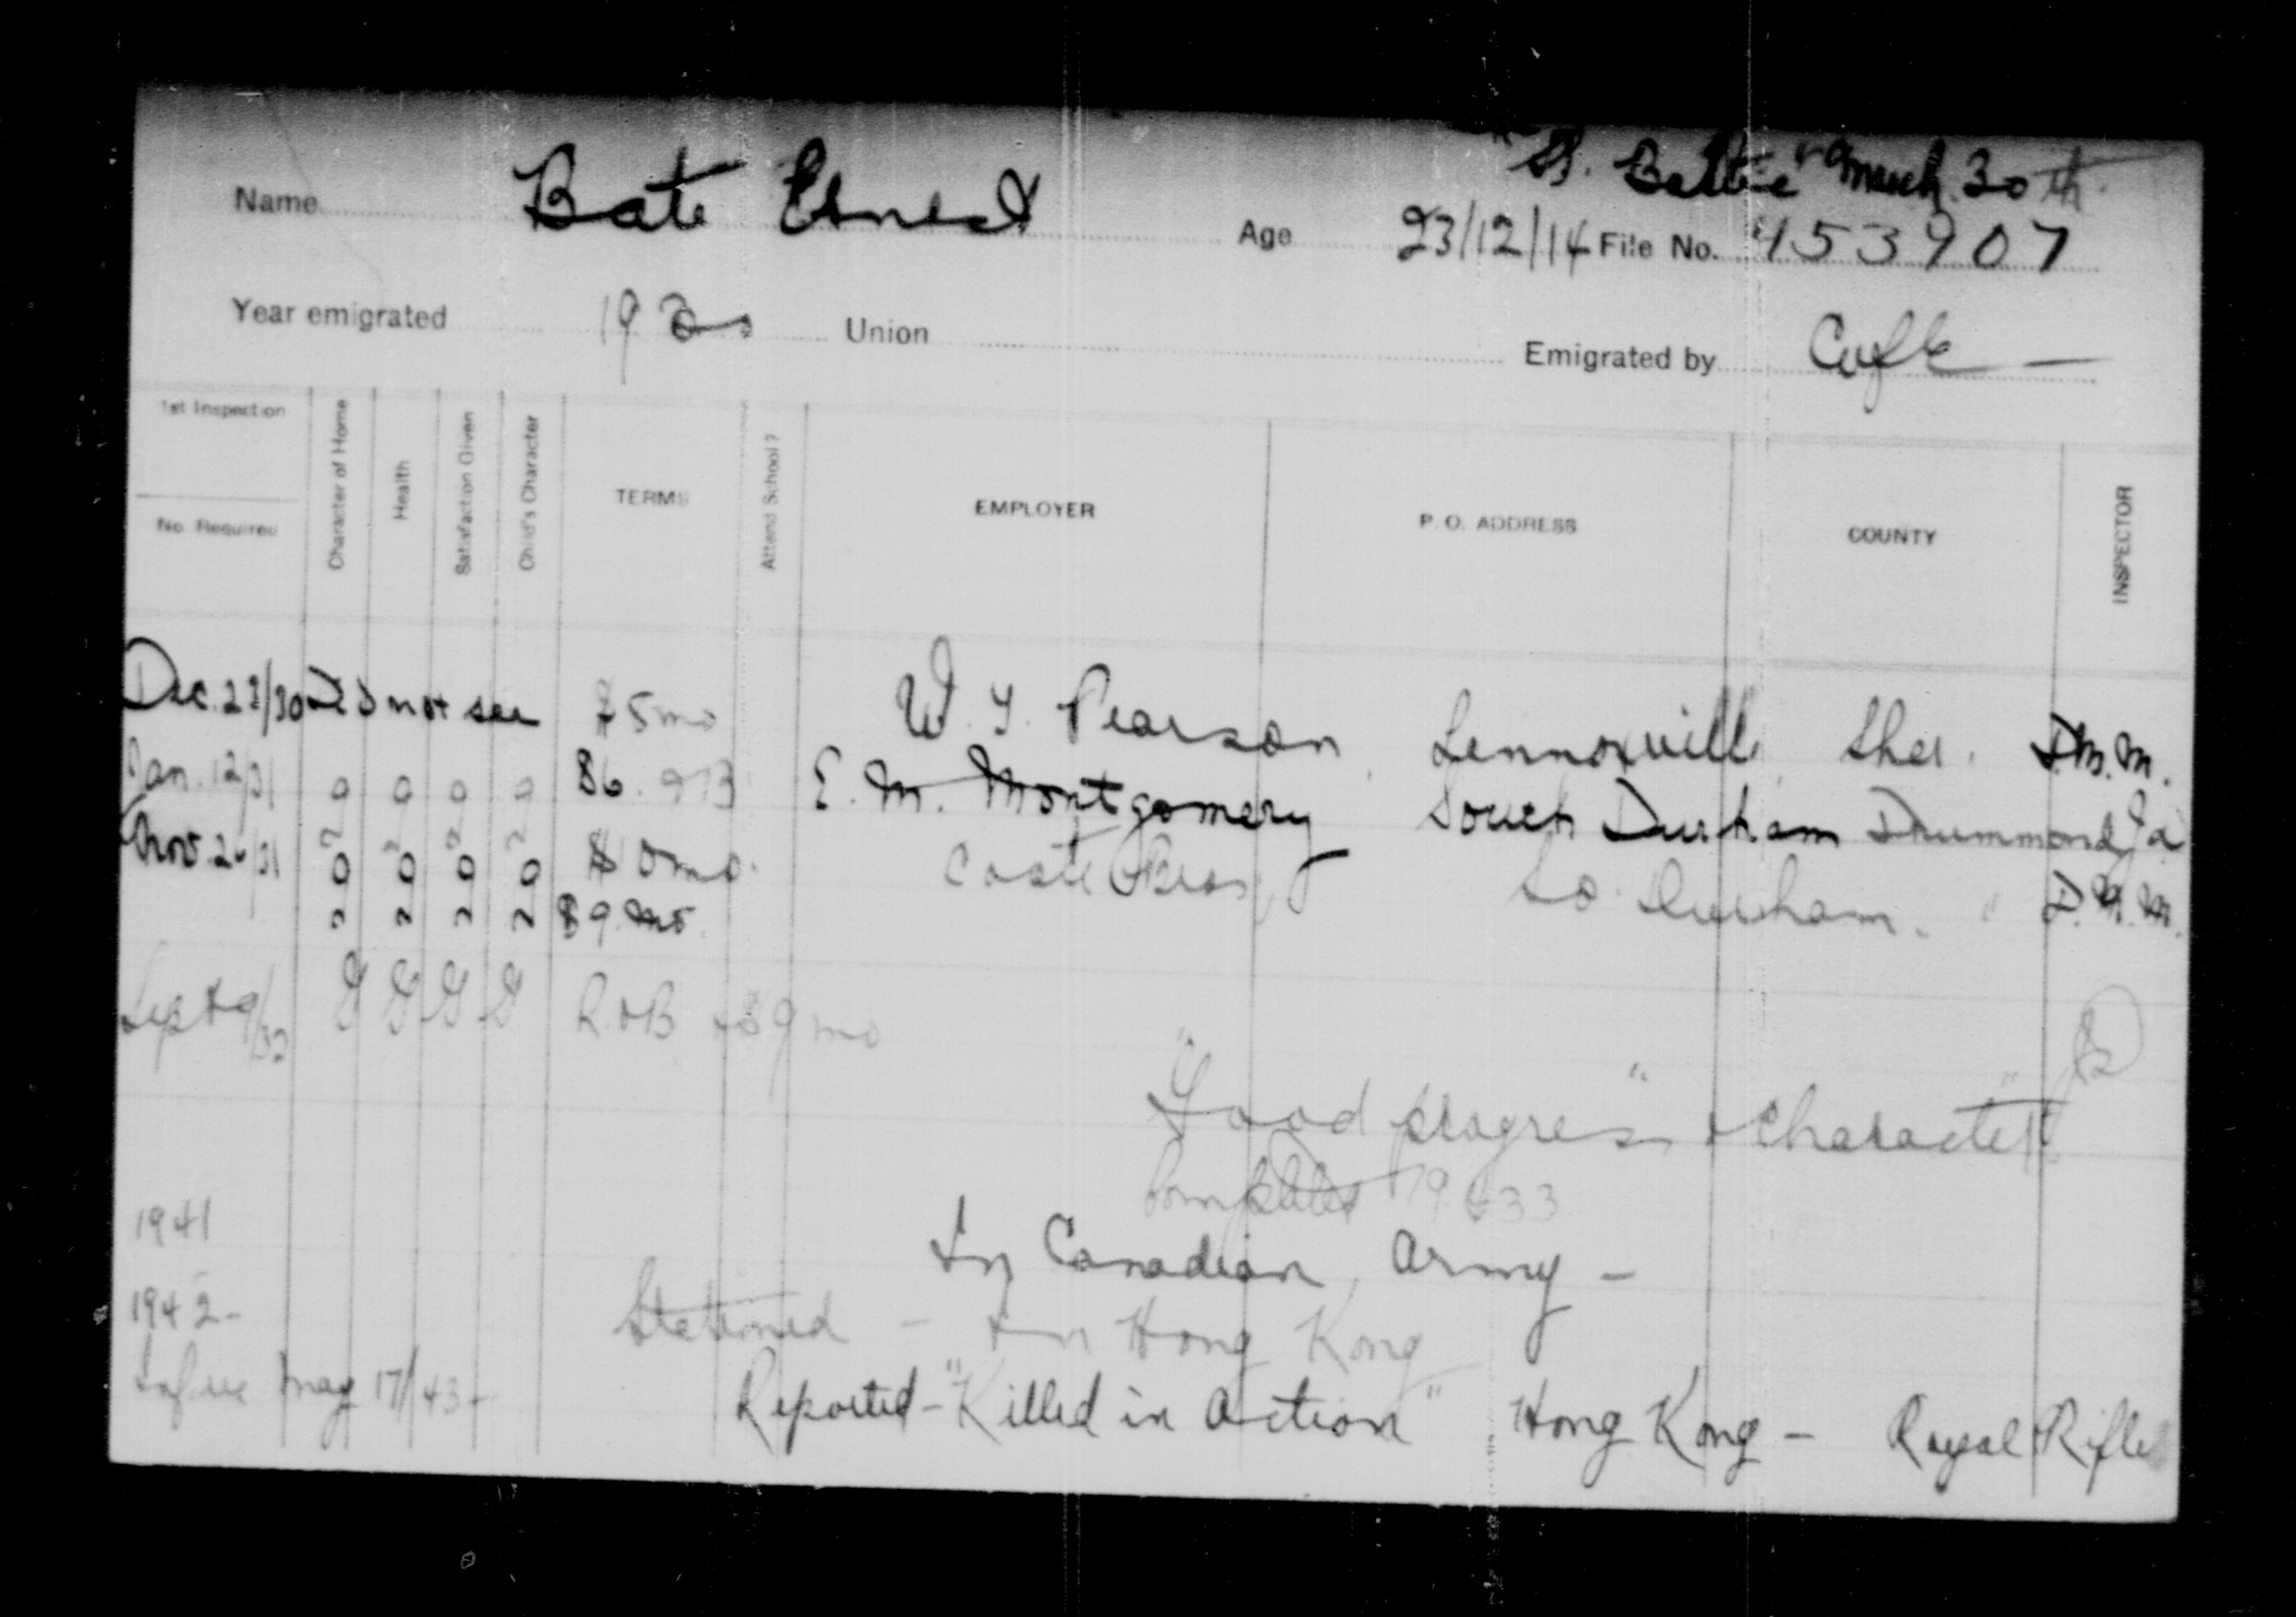 SS. Baltic March 30th
Name Bate Ernest Age 23/12/14 File No. 453907
Year emigrated 1930 Union Emigrated by
1st Inspection
No. Required
Character of Home
Health
Satisfaction Given
Child's Character
TERMS
Attend School?
EMPLOYER
P. O. ADDRESS
COUNTY
INSPECTOR
Dec. 23/30 Did not see $5 mo W. Y. Pearson Lennoxville Sher. D.M.M.
Jan. 12/31 g g g g $6. E. M. Montgomery South Durham Drummond
Nov. 26/31 g g g g $10 mo. Coste Bros So. Durham. " D.M.M.
$9. mo.
Sept 9/32 G G G G R & B + $9 mo
"Good progress" & "Character"
Completed 1933
1941 In Canadian Army -
1942 - Stationed - In Hong Kong
May 17/43 - Reported - "Killed in Action" Hong Kong - Royal Rifles